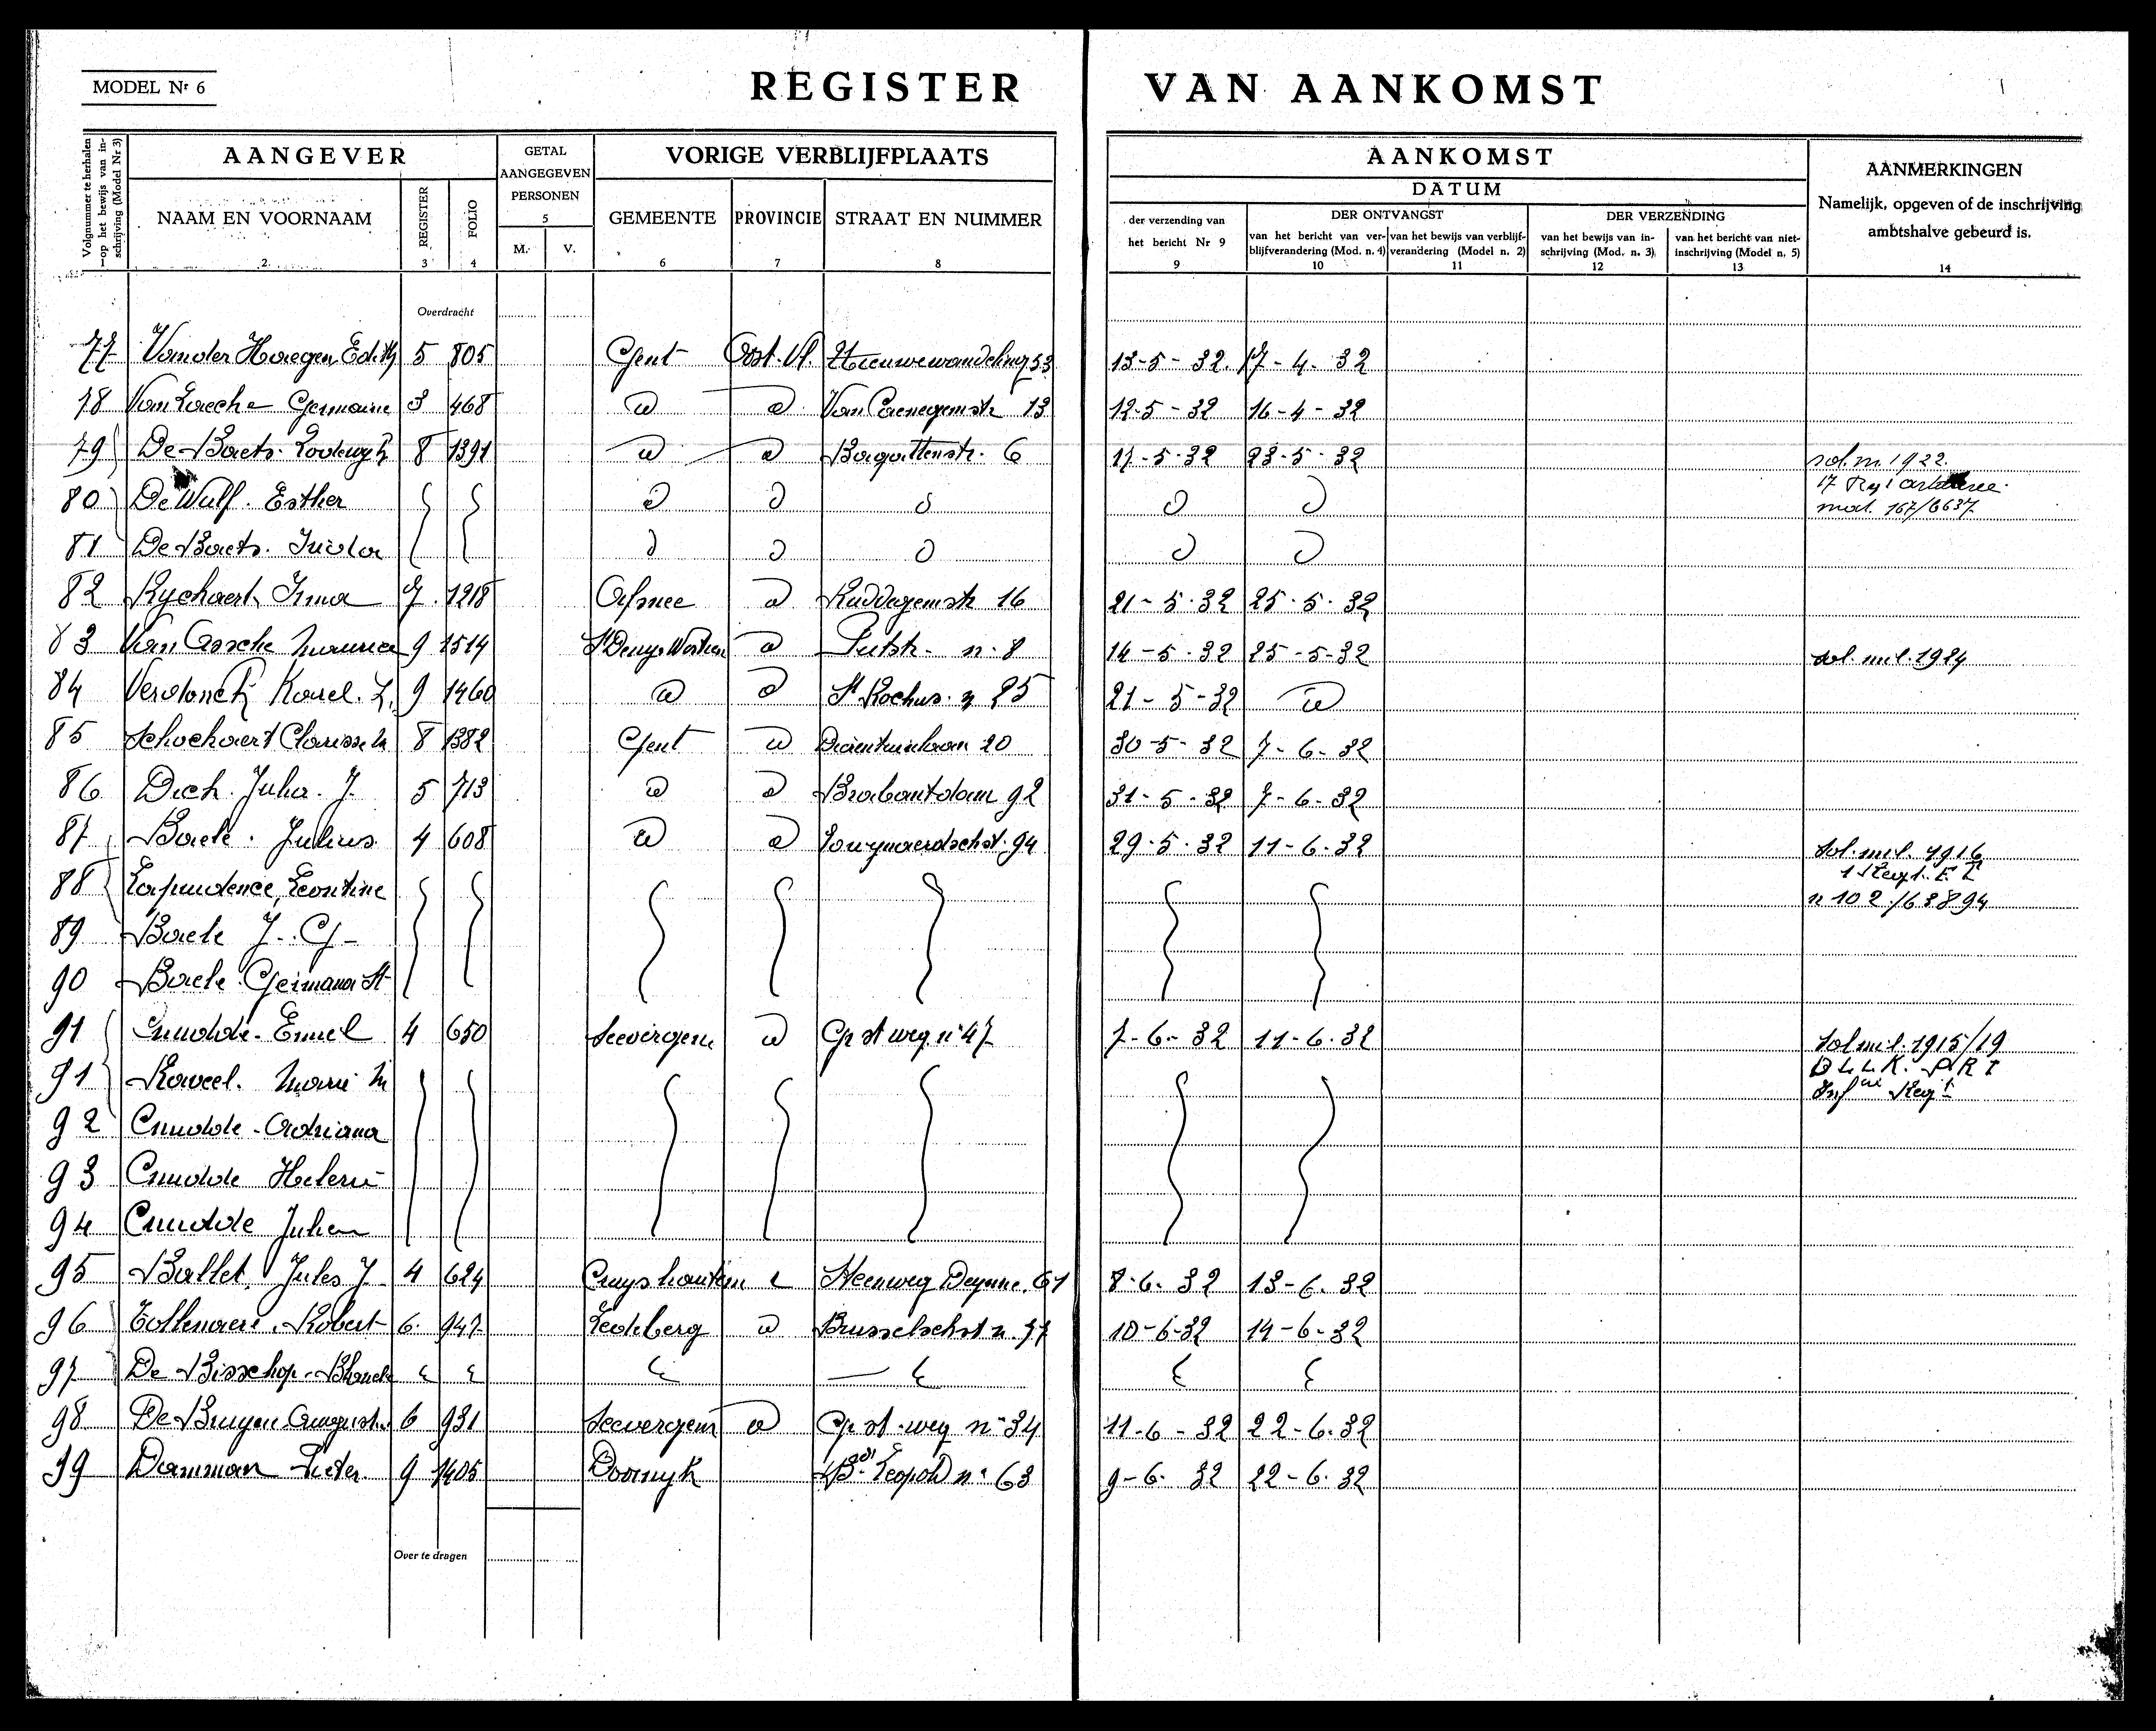 MODEL Nr 6
REGISTER VAN AANKOMST
Volgnummer te herhalen op het bewijs van inschrijving (Model Nr 3)
AANGEVER
GETAL AANGEGEVEN PERSONEN
VORIGE VERBLIJFPLAATS
AANKOMST
AANMERKINGEN
Namelijk, opgeven of de inschrijving ambtshalve gebeurd is.
DATUM
NAAM EN VOORNAAM REGISTER FOLIO M. V. GEMEENTE PROVINCIE STRAAT EN NUMMER
der verzending van het bericht Nr 9
DER ONTVANGST
van het bericht van verblijfverandering (Mod. n. 4) van het bewijs van verblijfverandering (Model n. 2)
DER VERZENDING
van het bewijs van inschrijving (Mod. n. 3) van het bericht van niet-inschrijving (Model n. 5)
1 2 3 4 5 6 7 8 9 10 11 12 13 14
Overdracht
77 Vander Haegen Edith 5 805 Gent Oost. Vl. Nieuwewandeling 53 13-5-32. 17-4-32
78 Van Laecke Germaine 3 468 id id Van Caenegemstr 13 12-5-32 16-4-32
79 De Baets Lodewyk 8 1391 id id Bagattenstr. 6 17-5-32 23-5-32 sol. m. 1922.
80 De Wulf. Esther id id id id id 17 Reg artillerie mat. 167/6637
81 De Baets. id id id id id
82 Ryckaert Irma 7. 1218 Afsnee id Ruddegemstr 16 21-5-32 25-5-32
83 Van Assche Maurice 9 1514 St Denys Westrem id Putstr - n. 8 14-5-32 25-5-32 sol. mil. 1924
84 Verdonck Karel. L. 9 1460 id id St Rochus. n 25 21-5-32 id
85 Schockaert Clarisse 8 1382 Gent id 20 30-5-32 7-6-32
86 Julia. J. 5 713 id id Brabantdam 92 31-5-32 7-6-32
87 Baele. Julius 4 608 id id 94 29-5-32 11-6-32 sol. mil. 1916
88 Leontine 1 Regt.
n 102/63894
89 Baele J. G
90 Baele Germana
91 Cnudde Emiel 4 650 Seevergem id Gr st weg n 47 7-6-32 11-6-32 Sol mil. 1915/19
91 Roweel. Marie M
92 Cnudde Adriana
93 Cnudde Helene
94 Cnudde Julien
95 Ballet Jules J 4 624 Cruyshautem Steenweg Deynze. 61 8-6-32 13-6-32
96 Robert 6. 947 Ledeberg id Brusselschst n. 77 10-6-32 14-6-32
97 De Bisschop
98 De Bruyne 6 931 Seevergem id Gr st weg n 34 11-6-32 22-6-32
99 Damman Pieter. 9 1405 Doornyk Bd Leopold n 63 9-6-32 22-6-32
Over te dragen